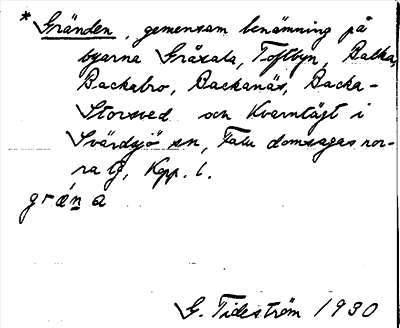 * Gränden, gemensam benämning på
byarna Gråsala, Toftbyn, Balka,
Backabro, Backanäs, Backa-
Storsved och Kvarntägt i
Svärdsjö sn, Falu domsagas nor-
ra tg, Kopp. l.
grä́n a
G. Tideström 1930